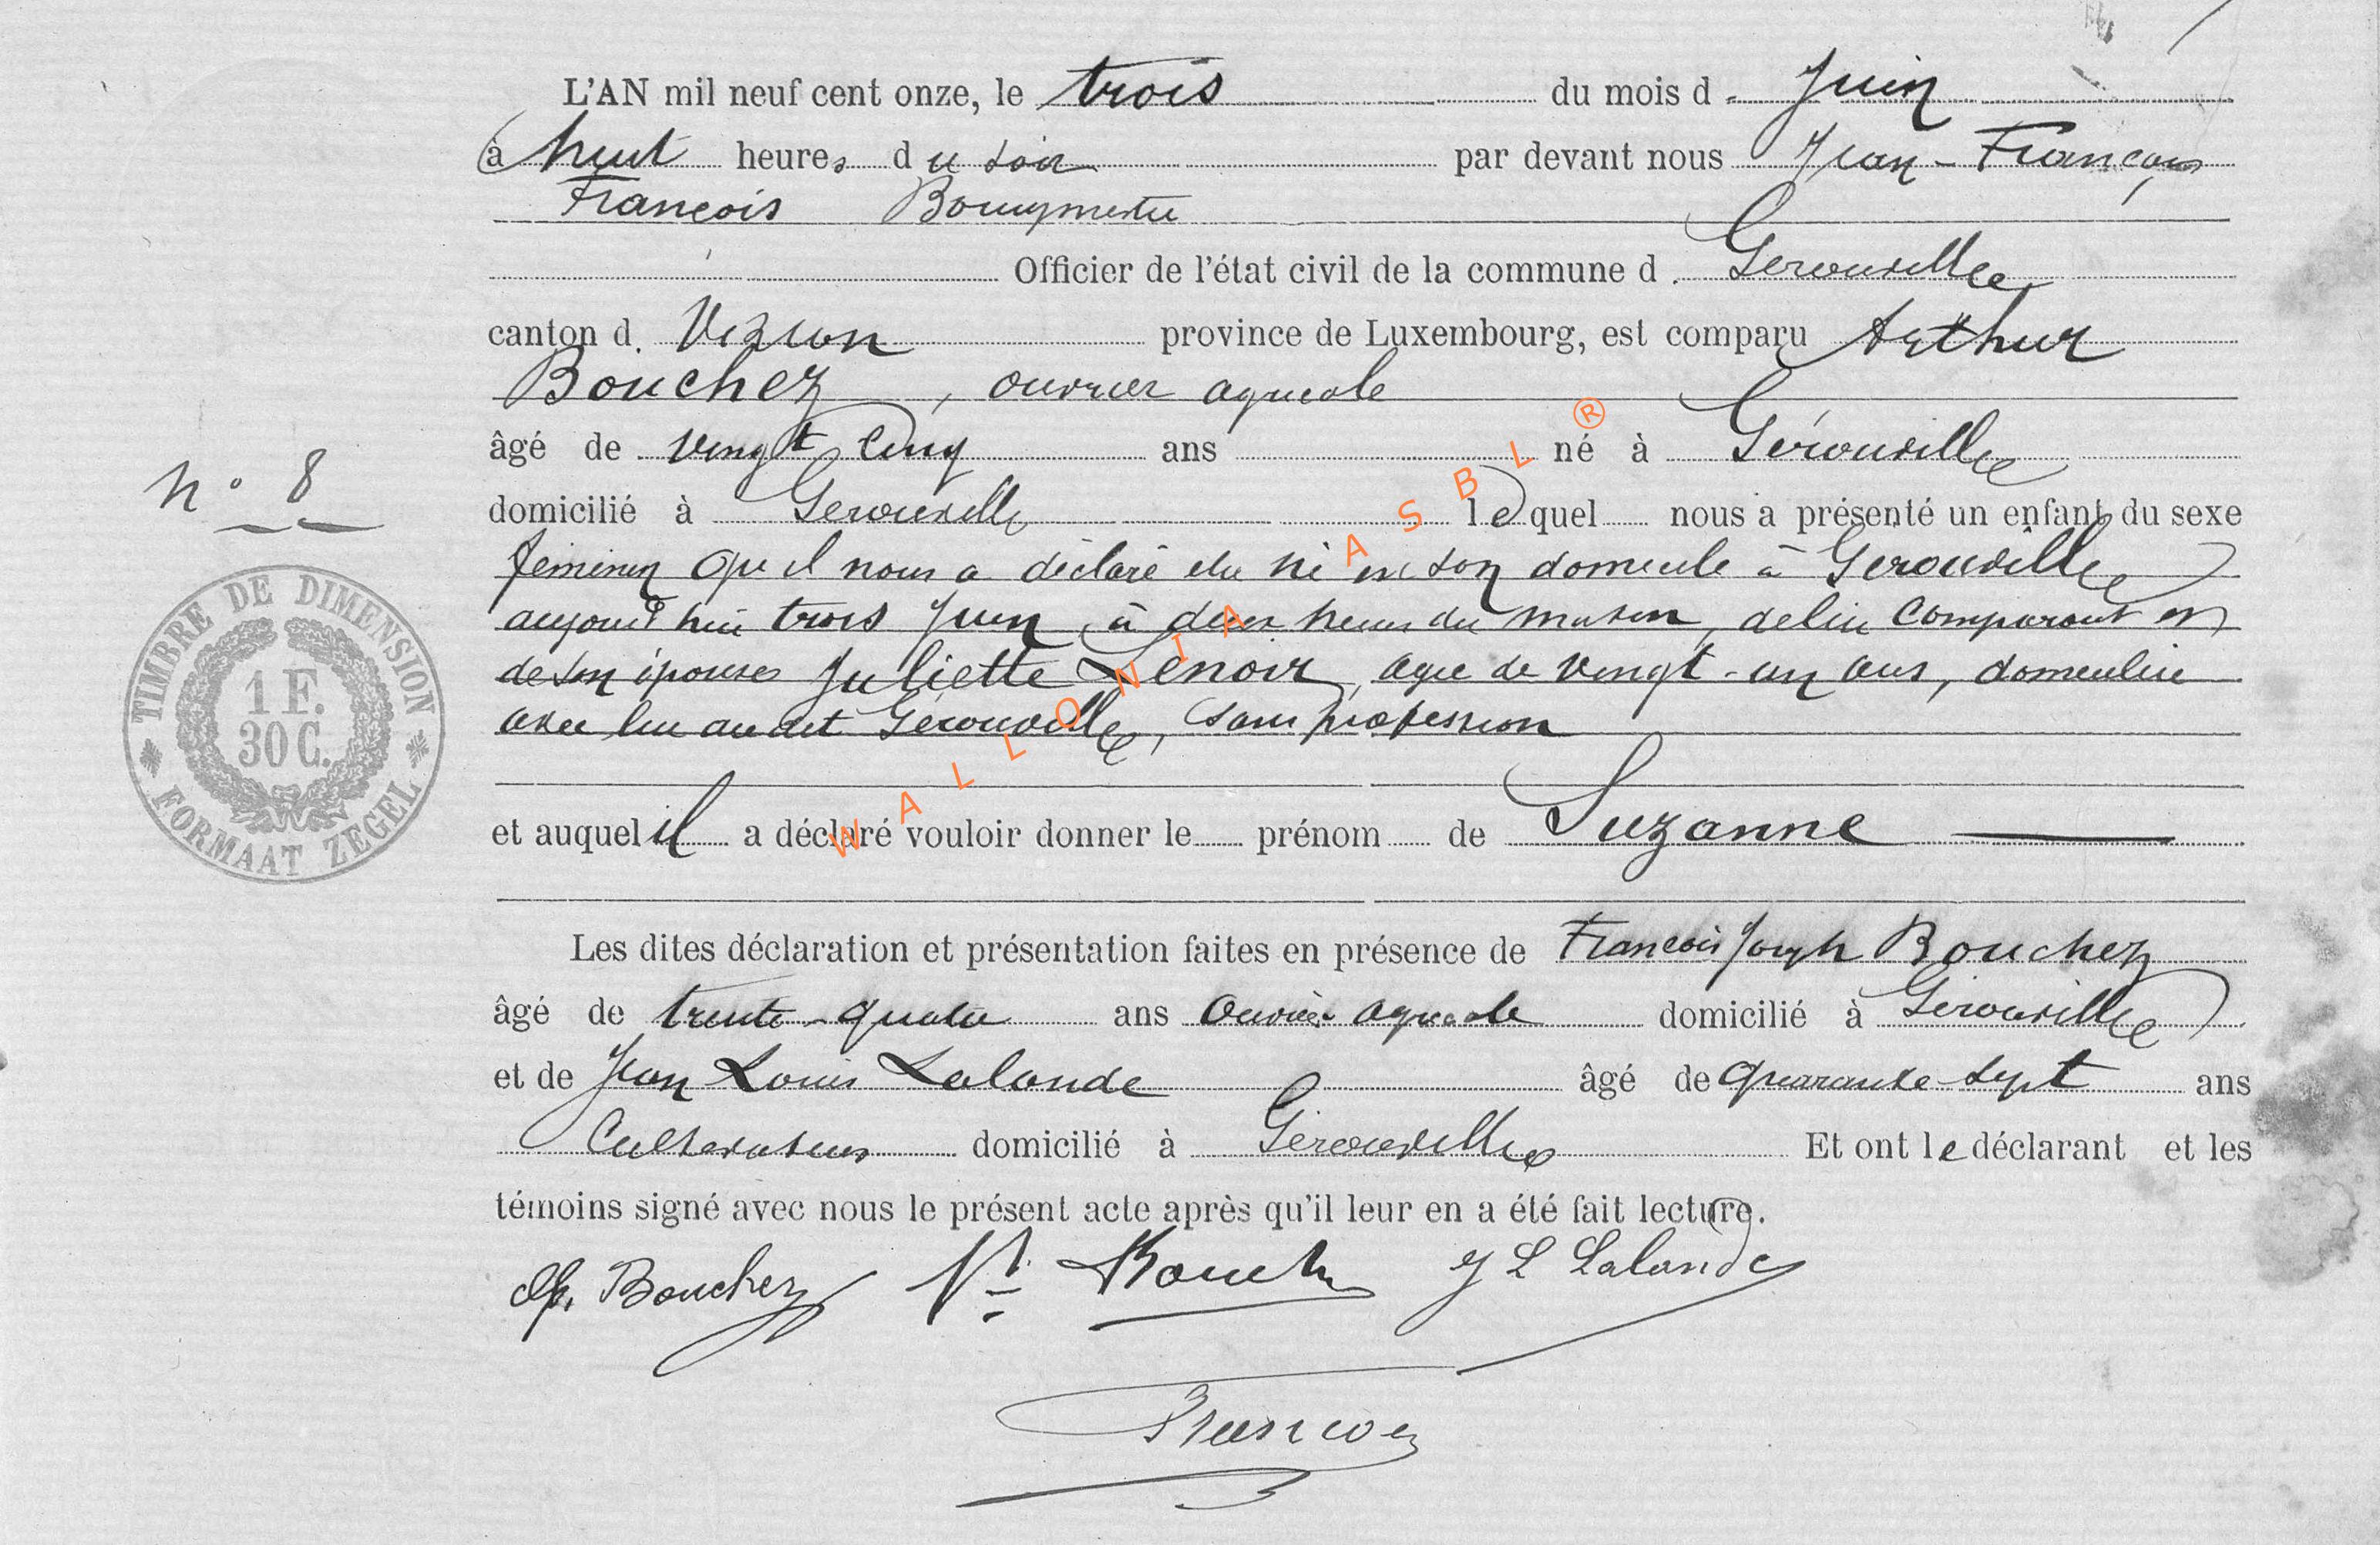 L'AN mil neuf cent onze, le trois du mois d Juin
à huit heures du soir par devant nous Jean-François
François Bourgmestre
Officier de l'état civil de la commune d Gerouville
canton d Virton province de Luxembourg, est comparu Arthur
Bouchez, ouvrier agricole
âgé de vingt cinq ans né à Gérouville
domicilié à Gerouville lequel nous a présenté un enfant du sexe
féminin qu'il nous a déclaré être né en son domicile à Gerouville
aujourd'hui trois Juin, à deux heures du matin, de lui comparant et
de son épouse Juliette Lenoir, agée de vingt-un ans, domiciliée
avec lui au dit Gérouville, sans profession
N° 8
TIMBRE DE DIMENSION
1 F.
30 C.
FORMAAT ZEGEL
WALLONIA ASBL ®
et auquel il a déclaré vouloir donner le prénom de Suzanne
Les dites déclaration et présentation faites en présence de François Joseph Bouchez
âgé de trente-quatre ans Ouvrier agricole domicilié à Gérouville
et de Jean Louis Lalande âgé de quarante-sept ans
Cultivateur domicilié à Gérouville Et ont le déclarant et les
témoins signé avec nous le présent acte après qu'il leur en a été fait lecture.
Bouchez J L Lalande
François